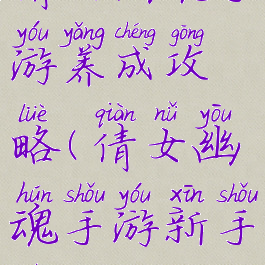 yóu yǎng chéng gōng
游养成攻
lüè qiàn nǚ yōu
略(倩女幽
hún shǒu yóu xīn shǒu
魂手游新手